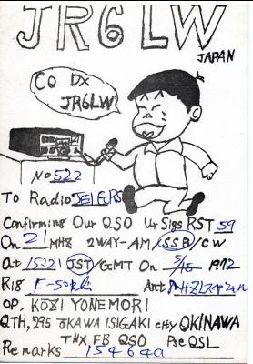 JR6LW
JAPAN
CQ DX
JR6LW
No 522
To Radio
Confirming Our QSO Ur Sigs RST 59
On 21 MHz 2WAY-AM/SSB/CW
At JST/GMT On 5/15 1972
Rig Ant
OP. KOZI YONEMORI
QTH, 995 OKAWA ISIGAKI city OKINAWA
TNX FB QSO Pse QSL
Remarks